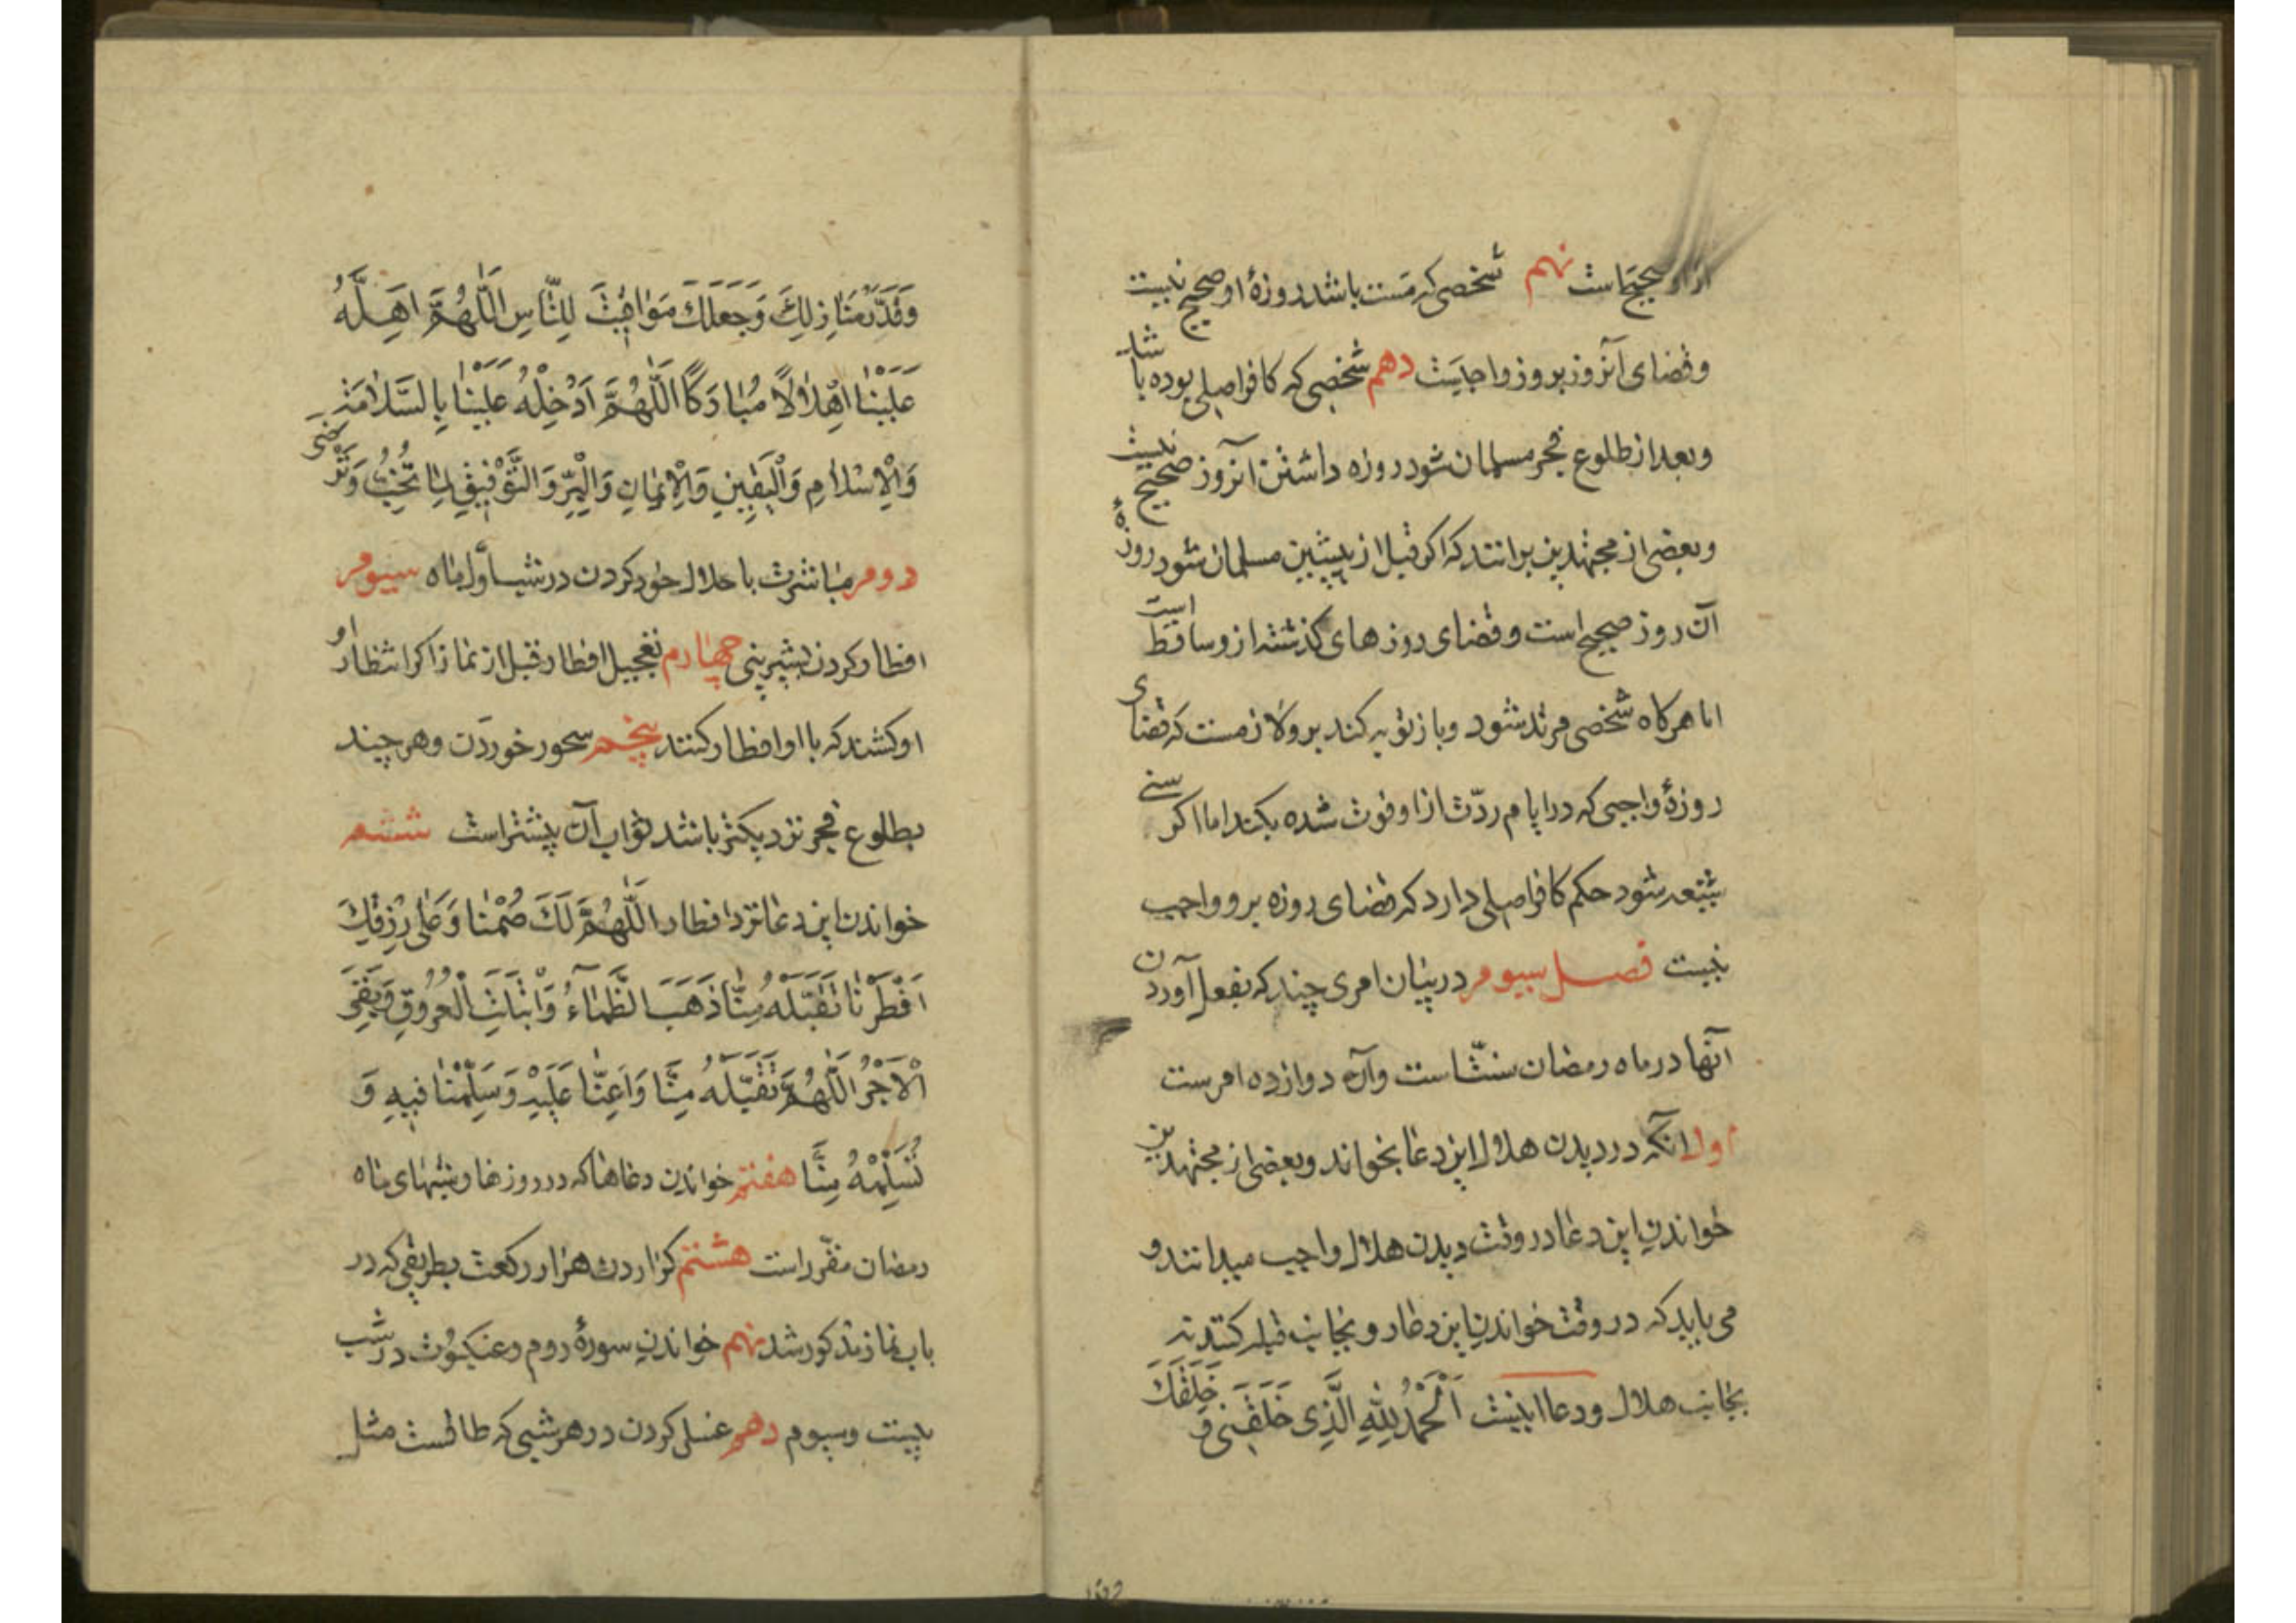 ازو صحیح است نهم شخصی که مست باشد روزهٔ او صحیح نیست
و قضای آنروز برو واجبست دهم شخصی که کافر اصلی بوده باشد
و بعد از طلوع فجر مسلمان شود روزه داشتن آنروز صحیح نیست
و بعضی از مجتهدین برانند که اکر قبل از پیشین مسلمان شود روزهٔ
آن روز صحیح است و قضای روزهای کذشته ازو ساقط است
اما هرکاه شخصی مرتد شود و باز توبه کند برو لازمست که قضای
روزهٔ واجبی که در ایام ردّت ازو فوت شده بکند اما اکر سنی
شیعه شود حکم کافر اصلی دارد که قضای روزه برو واجب
نیست فصل سیوم در بیان امری چند که بفعل آوردن
آنها در ماه رمضان سنّت است و آن دوازده امرست
اول آنکه در دیدن هلال این دعا بخواند و بعضی از مجتهدین
خواندن این دعا در وقت دیدن هلال واجب میدانند و
می باید که در وقت خواندن این دعا رو بجانب قبله کنند نه
بجانب هلال و دعا اینست اَلْحَمْدُ لِلّٰهِ الَّذِی خَلَقَنِی وَ خَلَقَكَ
وَقَدَّرَ مَنَازِلَكَ وَجَعَلَكَ مَوَاقِیتَ لِلنَّاسِ اَللّٰهُمَّ اَهِلَّهُ
عَلَیْنَا اِهْلَالًا مُبَارَكًا اَللّٰهُمَّ اَدْخِلْهُ عَلَیْنَا بِالسَّلَامَةِ
وَالْاِسْلَامِ وَالْیَقِینِ وَالْاِیمَانِ وَالْبِرِّ وَالتَّوْفِیقِ لِمَا تُحِبُّ وَتَرْضی
دوم مباشرت با حلال خود کردن در شب اول ماه سیوم
افطار کردن بشیرینی چهارم تعجیل افطار قبل از نماز اکر انتظار او
او کشند که با او افطار کنند پنجم سحور خوردن و هر چند
بطلوع فجر نزدیکتر باشد ثواب آن بیشتر است ششم
خواندن این دعا نزد افطار اَللّٰهُمَّ لَكَ صُمْنَا وَعَلٰی رِزْقِكَ
اَفْطَرْنَا فَتَقَبَّلْهُ مِنَّا ذَهَبَ الظَّمَاءُ وَابْتَلَّتِ الْعُرُوقُ وَبَقِیَ
الْاَجْرُ اَللّٰهُمَّ تَقَبَّلْهُ مِنَّا وَاَعِنَّا عَلَیْهِ وَسَلِّمْنَا فِیهِ وَ
تَسَلَّمْهُ مِنَّا هفتم خواندن دعاها که در روزها و شبهای ماه
رمضان مقرّر است هشتم کزاردن هزار رکعت بطریقی که در
باب نماز مذکور شد نهم خواندن سورهٔ روم و عنکبوت در شب
بیست و سیوم دهم غسل کردن در هر شبی که طاقست مثل